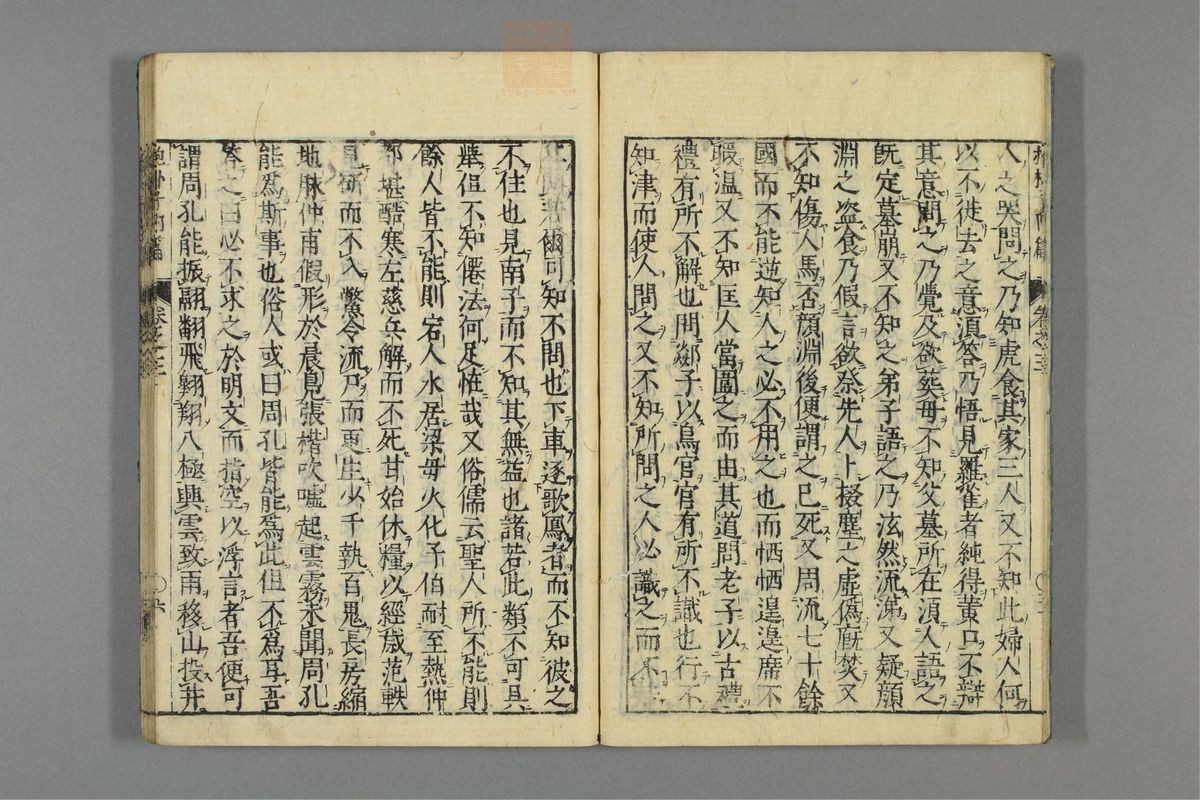 人之哭問之乃知虎食其家三人又不知此婦人何
以不徙去之意須答乃悟見羅雀者純得黄口不辯
其意問之乃覺及欲葬母不知父墓所在須人語之
既定墓崩又不知之弟子語之乃泫然流涕又疑顔
淵之盗食乃假言欲祭先人卜掇塵之虚偽厩焚又
不知傷人馬否顔淵後便謂之已死又周流七十餘
國而不能逆知人之必不用之也而栖栖遑遑席不
暇温又不知匡人當圍之而由其道問老子以古禮
禮有所不解也問郯子以鳥官官有所不識也行不
知津而使人問之又不知所問之人必譏之而不
爾可知不問也下車逐歌鳳者而不知彼之
不住也見南子而不知其無益也諸若此類不可具
舉但不知僊法何足恠哉又俗儒云聖人所不能則
餘人皆不能則宕人水居梁母火化子伯耐至熱仲
都堪酷寒左慈兵解而不死甘始休糧以經歳范軼
見斫而不入鱉令流尸而更生少千執百鬼長房縮
地脉仲甫假形於晨鳧張楷吹嘘起雲霧未聞周孔
能爲斯事也俗人或曰周孔皆能爲此但不爲耳吾
答之曰必不求之於明文而指空以浮言者吾便可
謂周孔能振翮翻飛翺翔八極興雲致雨移山投井
内篇 卷之三